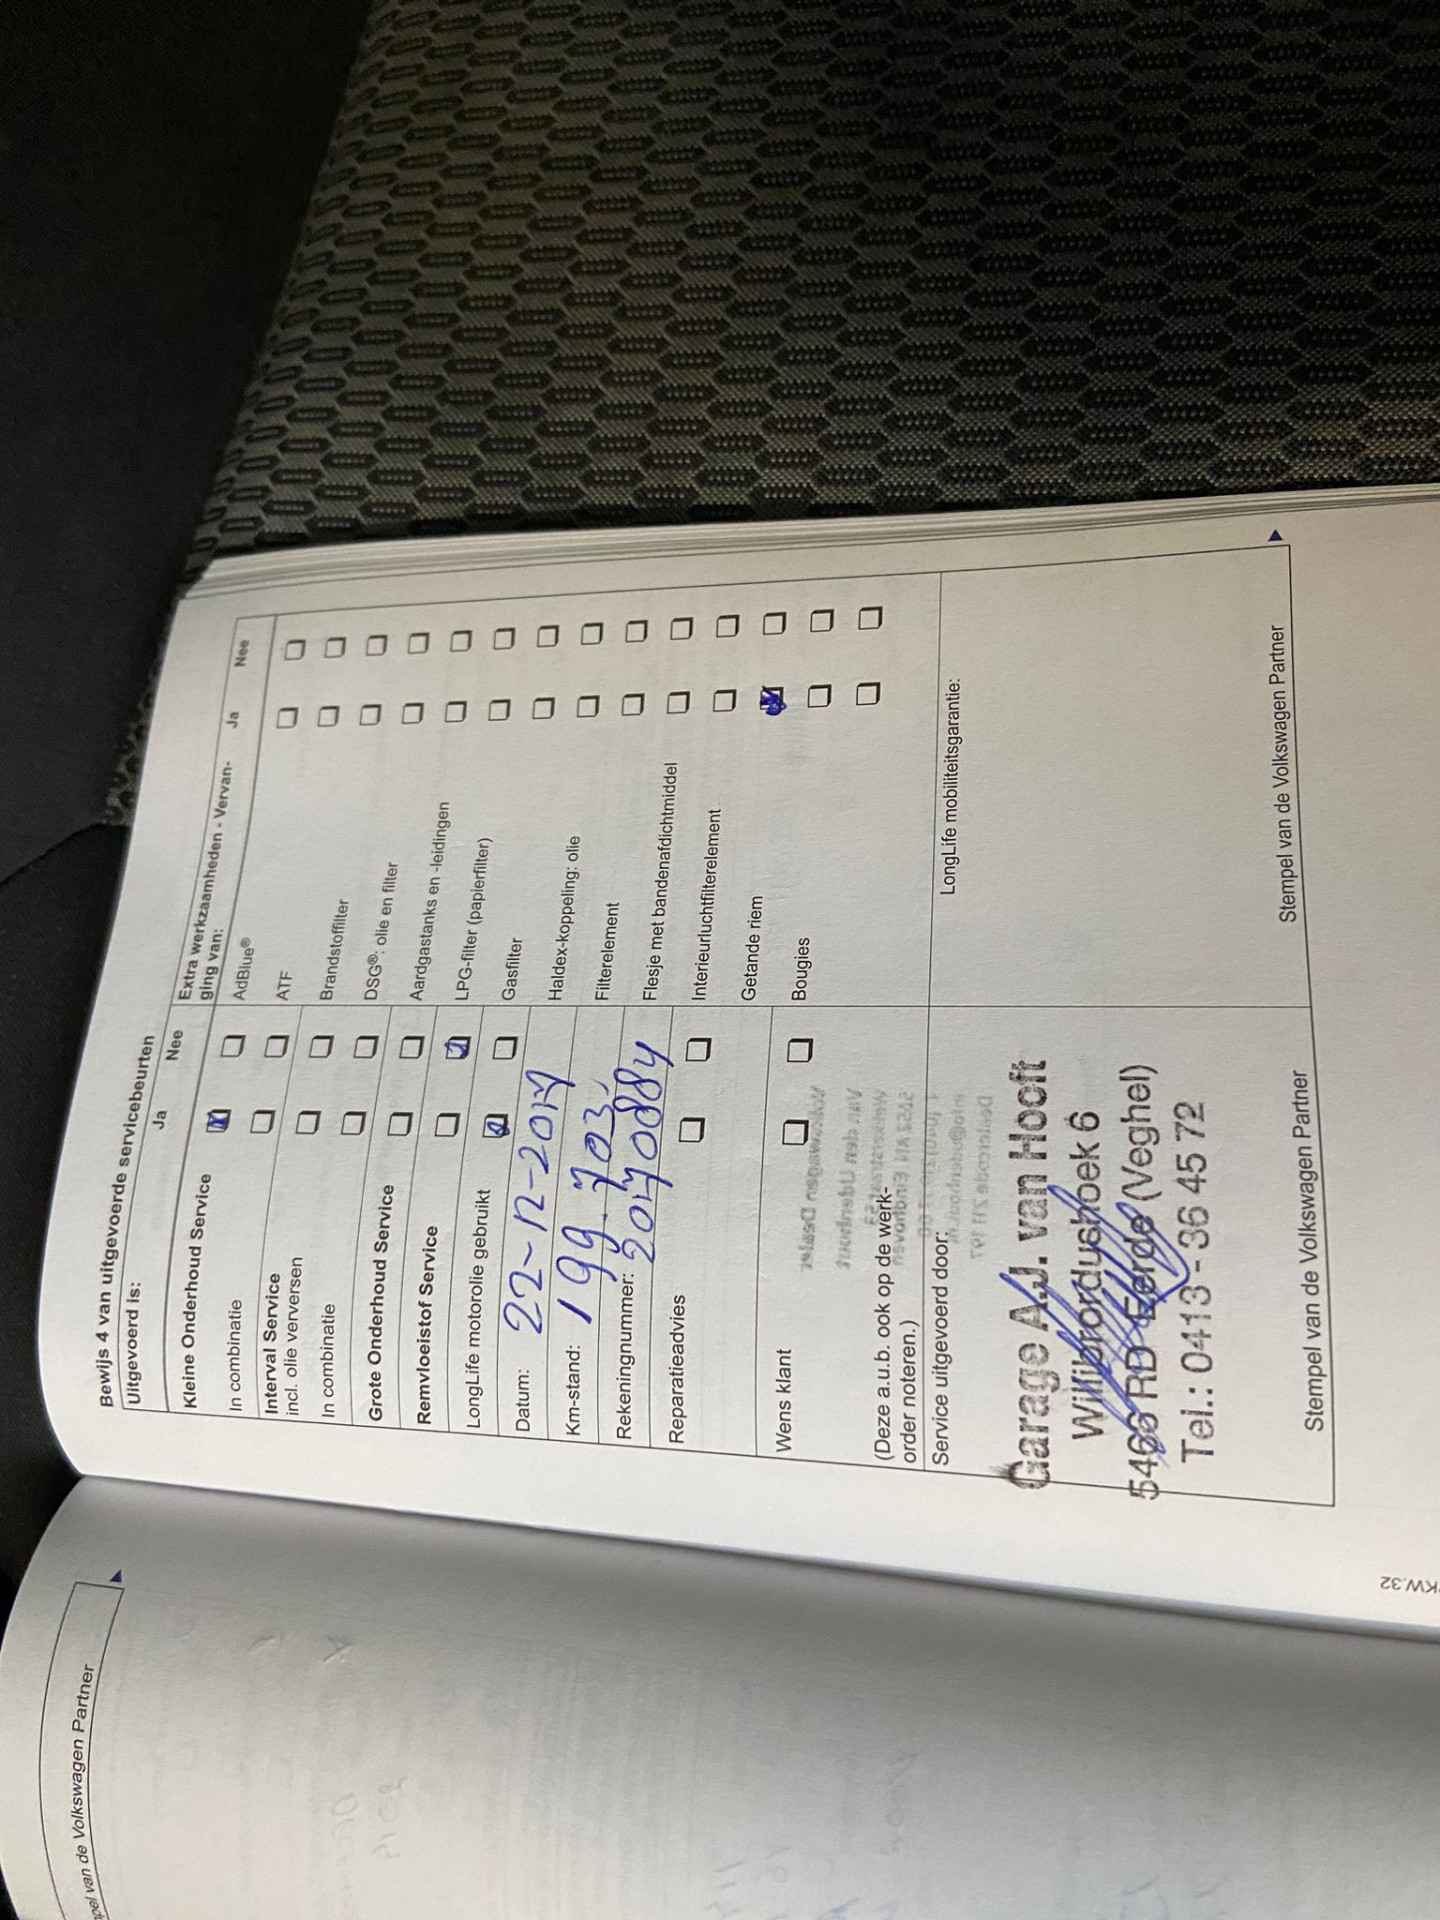 Stempel van de Volkswagen Partner
Bewijs 4 van uitgevoerde servicebeurten
Uitgevoerd is:
Ja
Nee
Kleine Onderhoud Service
In combinatie
Interval Service
incl. olie verversen
In combinatie
Grote Onderhoud Service
Remvloeistof Service
LongLife motorolie gebruikt
Datum: 22-12-2017
Km-stand: 199.703,
Rekeningnummer: 20170884
Reparatieadvies
Wens klant
(Deze a.u.b. ook op de werk-
order noteren.)
Extra werkzaamheden - Vervan-
ging van:
Ja
Nee
AdBlue®
ATF
Brandstoffilter
DSG®: olie en filter
Aardgastanks en -leidingen
LPG-filter (papierfilter)
Gasfilter
Haldex-koppeling: olie
Filterelement
Flesje met bandenafdichtmiddel
Interieurluchtfilterelement
Getande riem
Bougies
Service uitgevoerd door:
Garage A.J. van Hooft
Willibrordushoek 6
5466 RD Eerde (Veghel)
Tel.: 0413 - 36 45 72
Stempel van de Volkswagen Partner
LongLife mobiliteitsgarantie:
Stempel van de Volkswagen Partner
KW.32